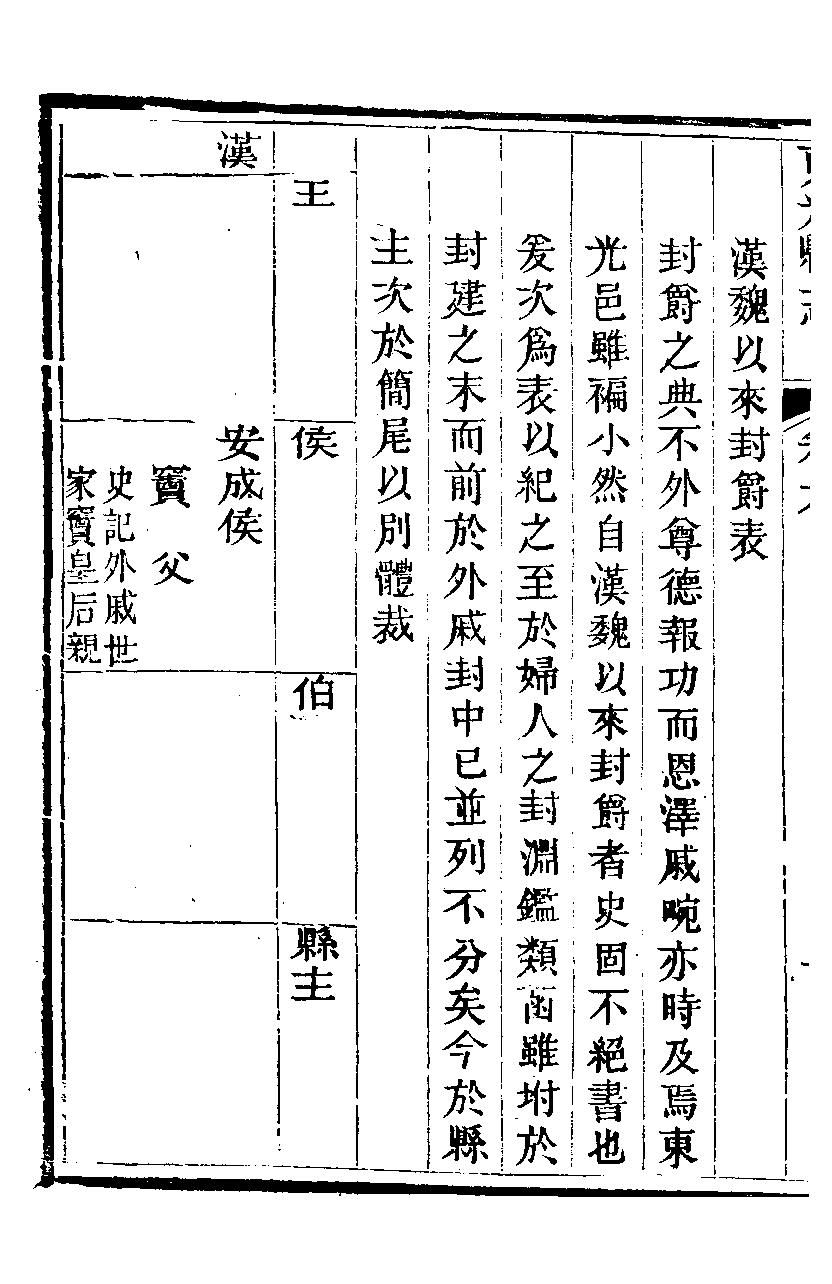 漢魏以來封爵表
封爵之典不外尊德報功而恩澤戚畹亦時及焉東
光邑雖褊小然自漢魏以來封爵者史固不絕書也
爰次爲表以紀之至於婦人之封淵鑑類函雖坿於
封建之末而前於外戚封中已並列不分矣今於縣
主次於簡尾以別體裁
王
侯
伯
縣主
漢
安成侯
竇父
史記外戚世
家竇皇后親